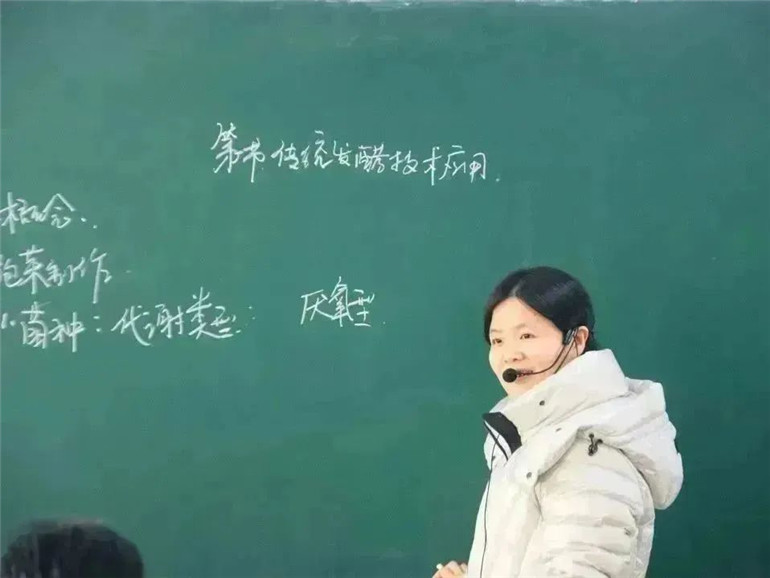 第一节 传统发酵技术应用.
概念.
泡菜制作
1.菌种:代谢类型: 厌氧型